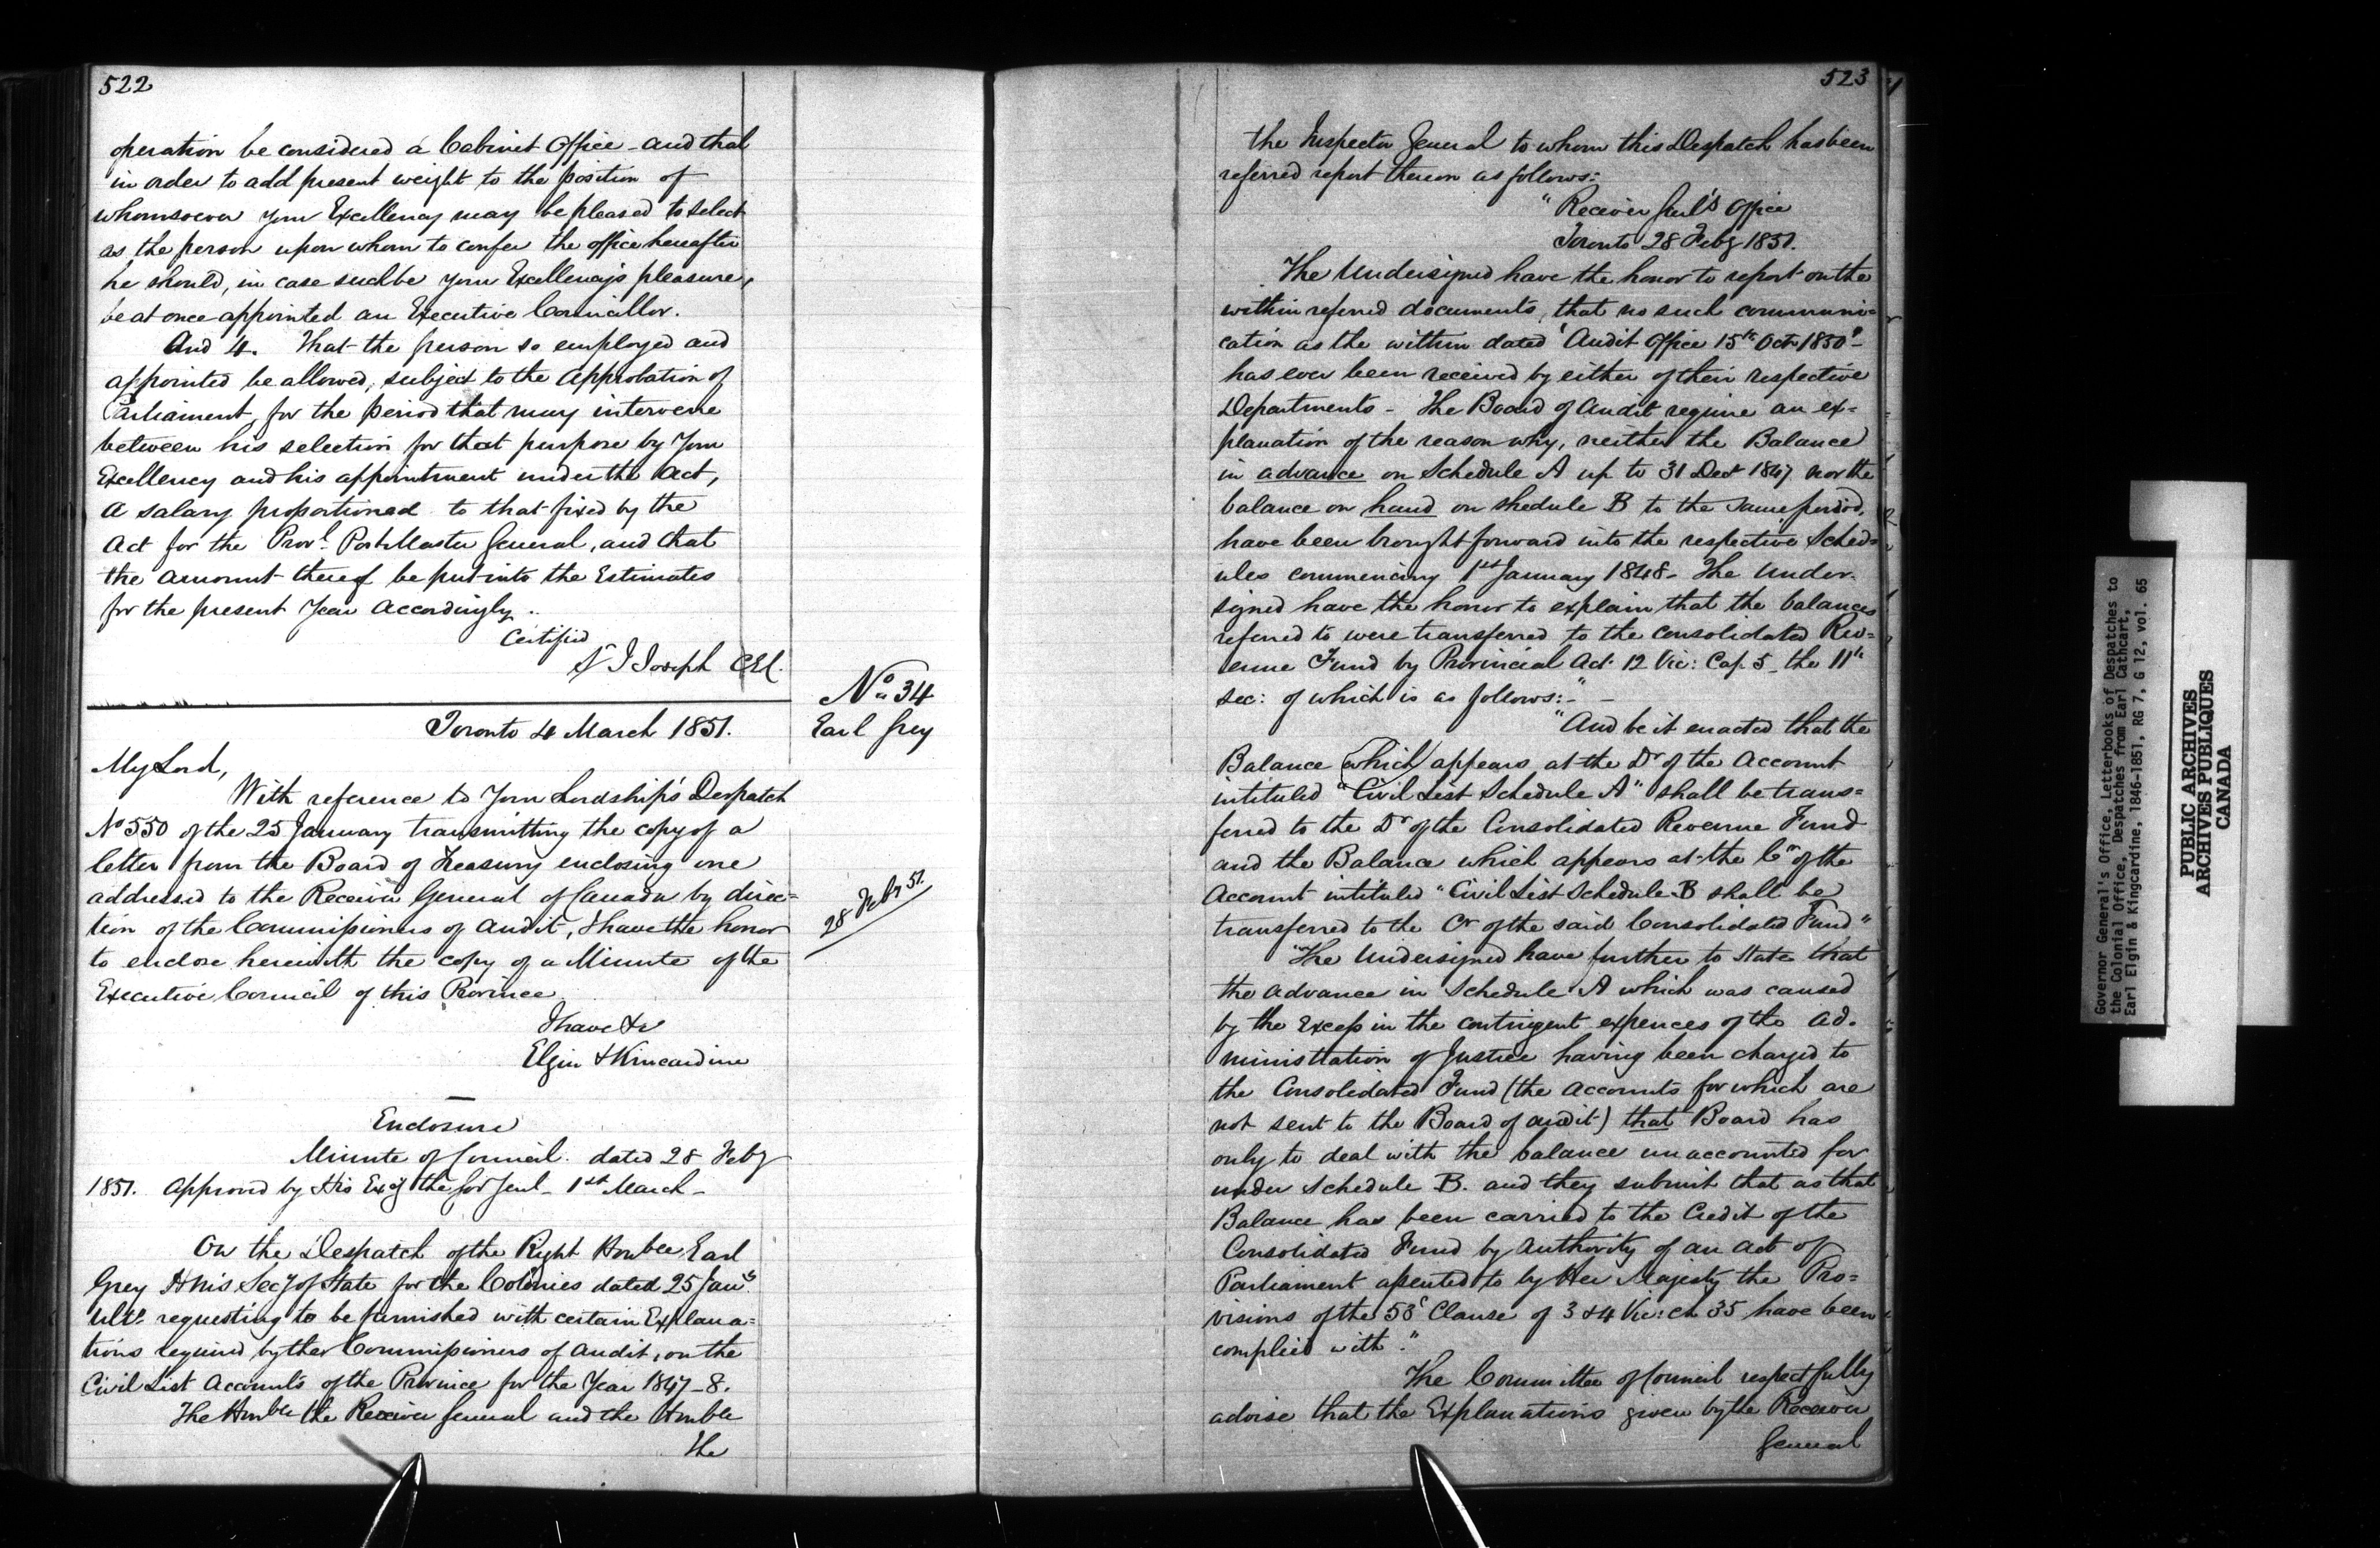 522
operation be considered a Cabinet Office - and that
in order to add present weight to the position of
whomsoever your Excellency may be pleased to select
as the person upon whom to confer the office hereafter
he should, in case such be your Excellency's pleasure,
be at once appointed an Executive Councillor.
And 4. That the person so employed and
appointed be allowed, subject to the approbation of
Parliament, for the period that may intervene
between his selection for that purpose by Your
Excellency and his appointment under the Act,
a salary proportioned to that fixed by the
Act for the Provl. Post Master General, and that
the amount thereof be put into the Estimates
for the present Year accordingly.
Certified
J Joseph CEC.
No. 34
Earl Grey
Toronto 4 March 1851.
My Lord,
With reference to Your Lordship's Despatch
No 550 of the 25 January transmitting the copy of a
letter from the Board of Treasury enclosing one
addressed to the Receiver General of Canada by direc=
tion of the Commissioners of Audit, I have the honor
28 Feby 51.
to enclose herewith the copy of a Minute of the
Executive Council of this Province
I have &c
Elgin & Kincardine
Enclosure
Minute of Council dated 28 Feby
1851. Approved by His Excy the Gov Genl - 1st March -
On the Despatch of the Right Honble Earl
Grey H M's Secy of State for the Colonies dated 25 Jany.
Ulto. requesting to be furnished with certain Explana=
tions required by the Commissioners of Audit, on the
Civil List Accounts of the Province for the Year 1847-8.
The Honble the Receiver General and the Honble
the
523
the Inspector General to whom this Despatch has been
referred report thereon as follows:
"Receiver Genl's Office
Toronto 28 Feby 1851.
The Undersigned have the honor to report on the
within referred documents, that no such communi=
cation as the within dated 'Audit Office 15th Oct 1850' -
has ever been received by either of their respective
Departments - The Board of Audit require an ex=
planation of the reason why, neither the Balance
in advance on Schedule A up to 31 Dec 1847 nor the
balance on hand on shedule B to the same period,
have been brought forward into the respective Sched=
ules commencing 1st January 1848 - The Under.
signed have the honor to explain that the balances
referred to were transferred to the consolidated Rev=
enue Fund by Provincial Act 12 Vic: Cap. 5 the 11th
Sec: of which is as follows: - "
"And be it enacted that the
Balance (which) appears at the Dr of the Account
intituled "Civil List Schedule A" shall be trans=
ferred to the Dr of the Consolidated Revenue Fund
and the Balance which appears at the Cr of the
Account intituled "Civil List Schedule B shall be
transferred to the Cr of the said Consolidated Fund"
"The Undersigned have further to state that
the advance in Schedule A which was caused
by the Excess in the contingent expences of the ad.
ministration of Justice having been charged to
the Consolidated Fund (the accounts for which are
not sent to the Board of audit) that Board has
only to deal with the balance unaccounted for
under Schedule B. and they submit that as that
Balance has been carried to the Credit of the
Consolidated Fund by Authority of an act of
Parliament assented to by Her Majesty the Pro=
visions of the 53d Clause of 3 & 4 Vic: ch 35 have been
complied with".
The Committee of Council respectfully
advise that the Explanations given by the Receiver
General
Governor General's Office, Letterbooks of Despatches to
the Colonial Office, Despatches from Earl Cathcart,
Earl Elgin & Kingcardine, 1846-1851, RG 7, G 12, vol. 65
PUBLIC ARCHIVES
ARCHIVES PUBLIQUES
CANADA